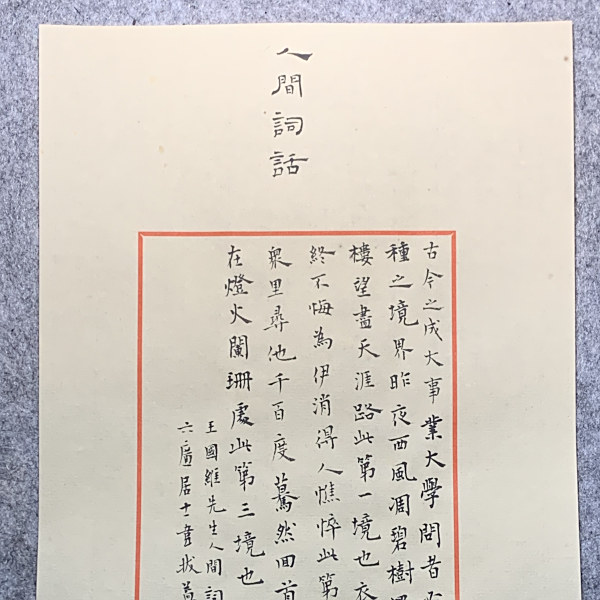 人間詞話
古今之成大事業大學問者
種之境界昨夜西風凋碧樹
樓望盡天涯路此第一境也衣
終不悔為伊消得人憔悴此第
眾里尋他千百度驀然回首
在燈火闌珊處此第三境也
王國維先生人間詞
六廬居士書於